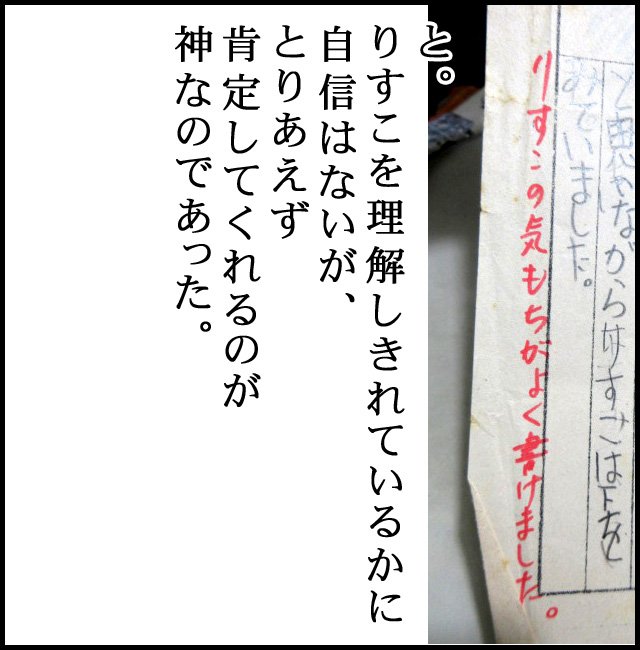 と思いながらりすこは下を
みていました。
りすこの気もちがよく書けました。
と。
りすこを理解しきれているかに
自信はないが、
とりあえず
肯定してくれるのが
神なのであった。